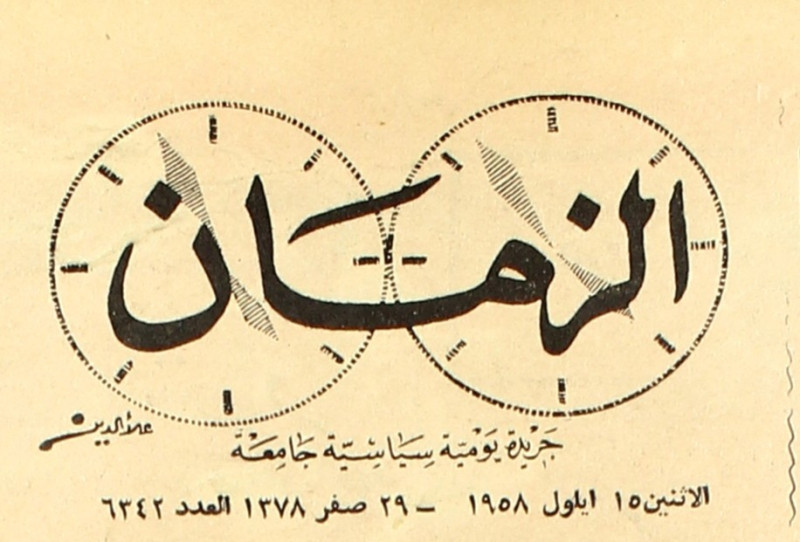 الزمان
علاءالدين
جريدة يومية سياسية جامعة
الاثنين ١٥ ايلول ١٩٥٨ - ٢٩ صفر ١٣٧٨ العدد ٦٣٤٢